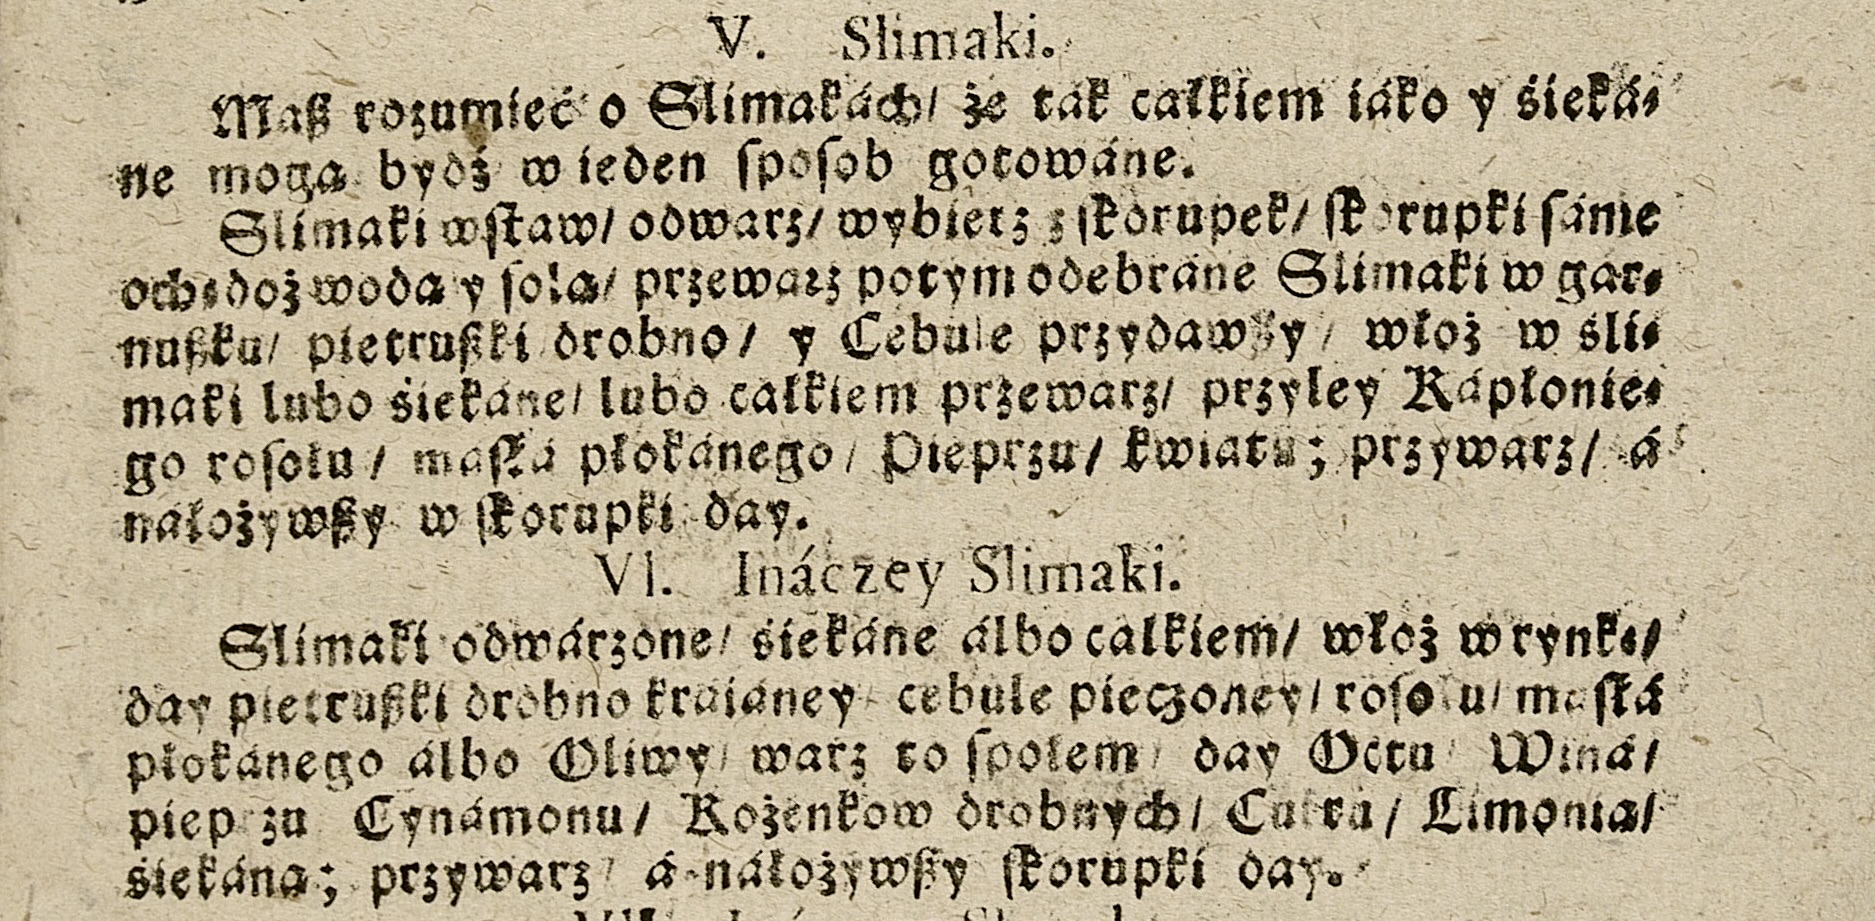 V. Slimaki.
Maß rozumieć o Slimakách/ że ták całkiem iáko y śieká-
ne mogą bydź w ieden sposob gotowáne.
Slimaki wstaw/ odwarz/ wybierz z skorupek/ skorupki sáme
och-doż wodą y solą/ przewarz potym odebráne Slimaki w gar-
nußku/ pietrußki drobno/ y Cebule przydawßy/ włoż w śli-
maki lubo śiekáne/ lubo całkiem przewarz/ przyley Kápłonie-
go rosołu/ masłá płokánego/ Pieprzu/ kwiatu; przywarz/ á
nałożywßy w skorupki day.
VI. Ináczey Slimaki.
Slimaki odwárzone/ śiekáne álbo całkiem/ włoż w rynk-/
day pietrußki drobno kráiáney cebule pieczoney/ rosołu/ masłá
płokánego álbo Oliwy/ warz to społem/ day Octu/ Winá/
pieprzu Cynámonu/ Rożenkow drobnych/ Cukru/ Limonią/
śiekáną; przywarz/ á náłożywßy skorupki day.